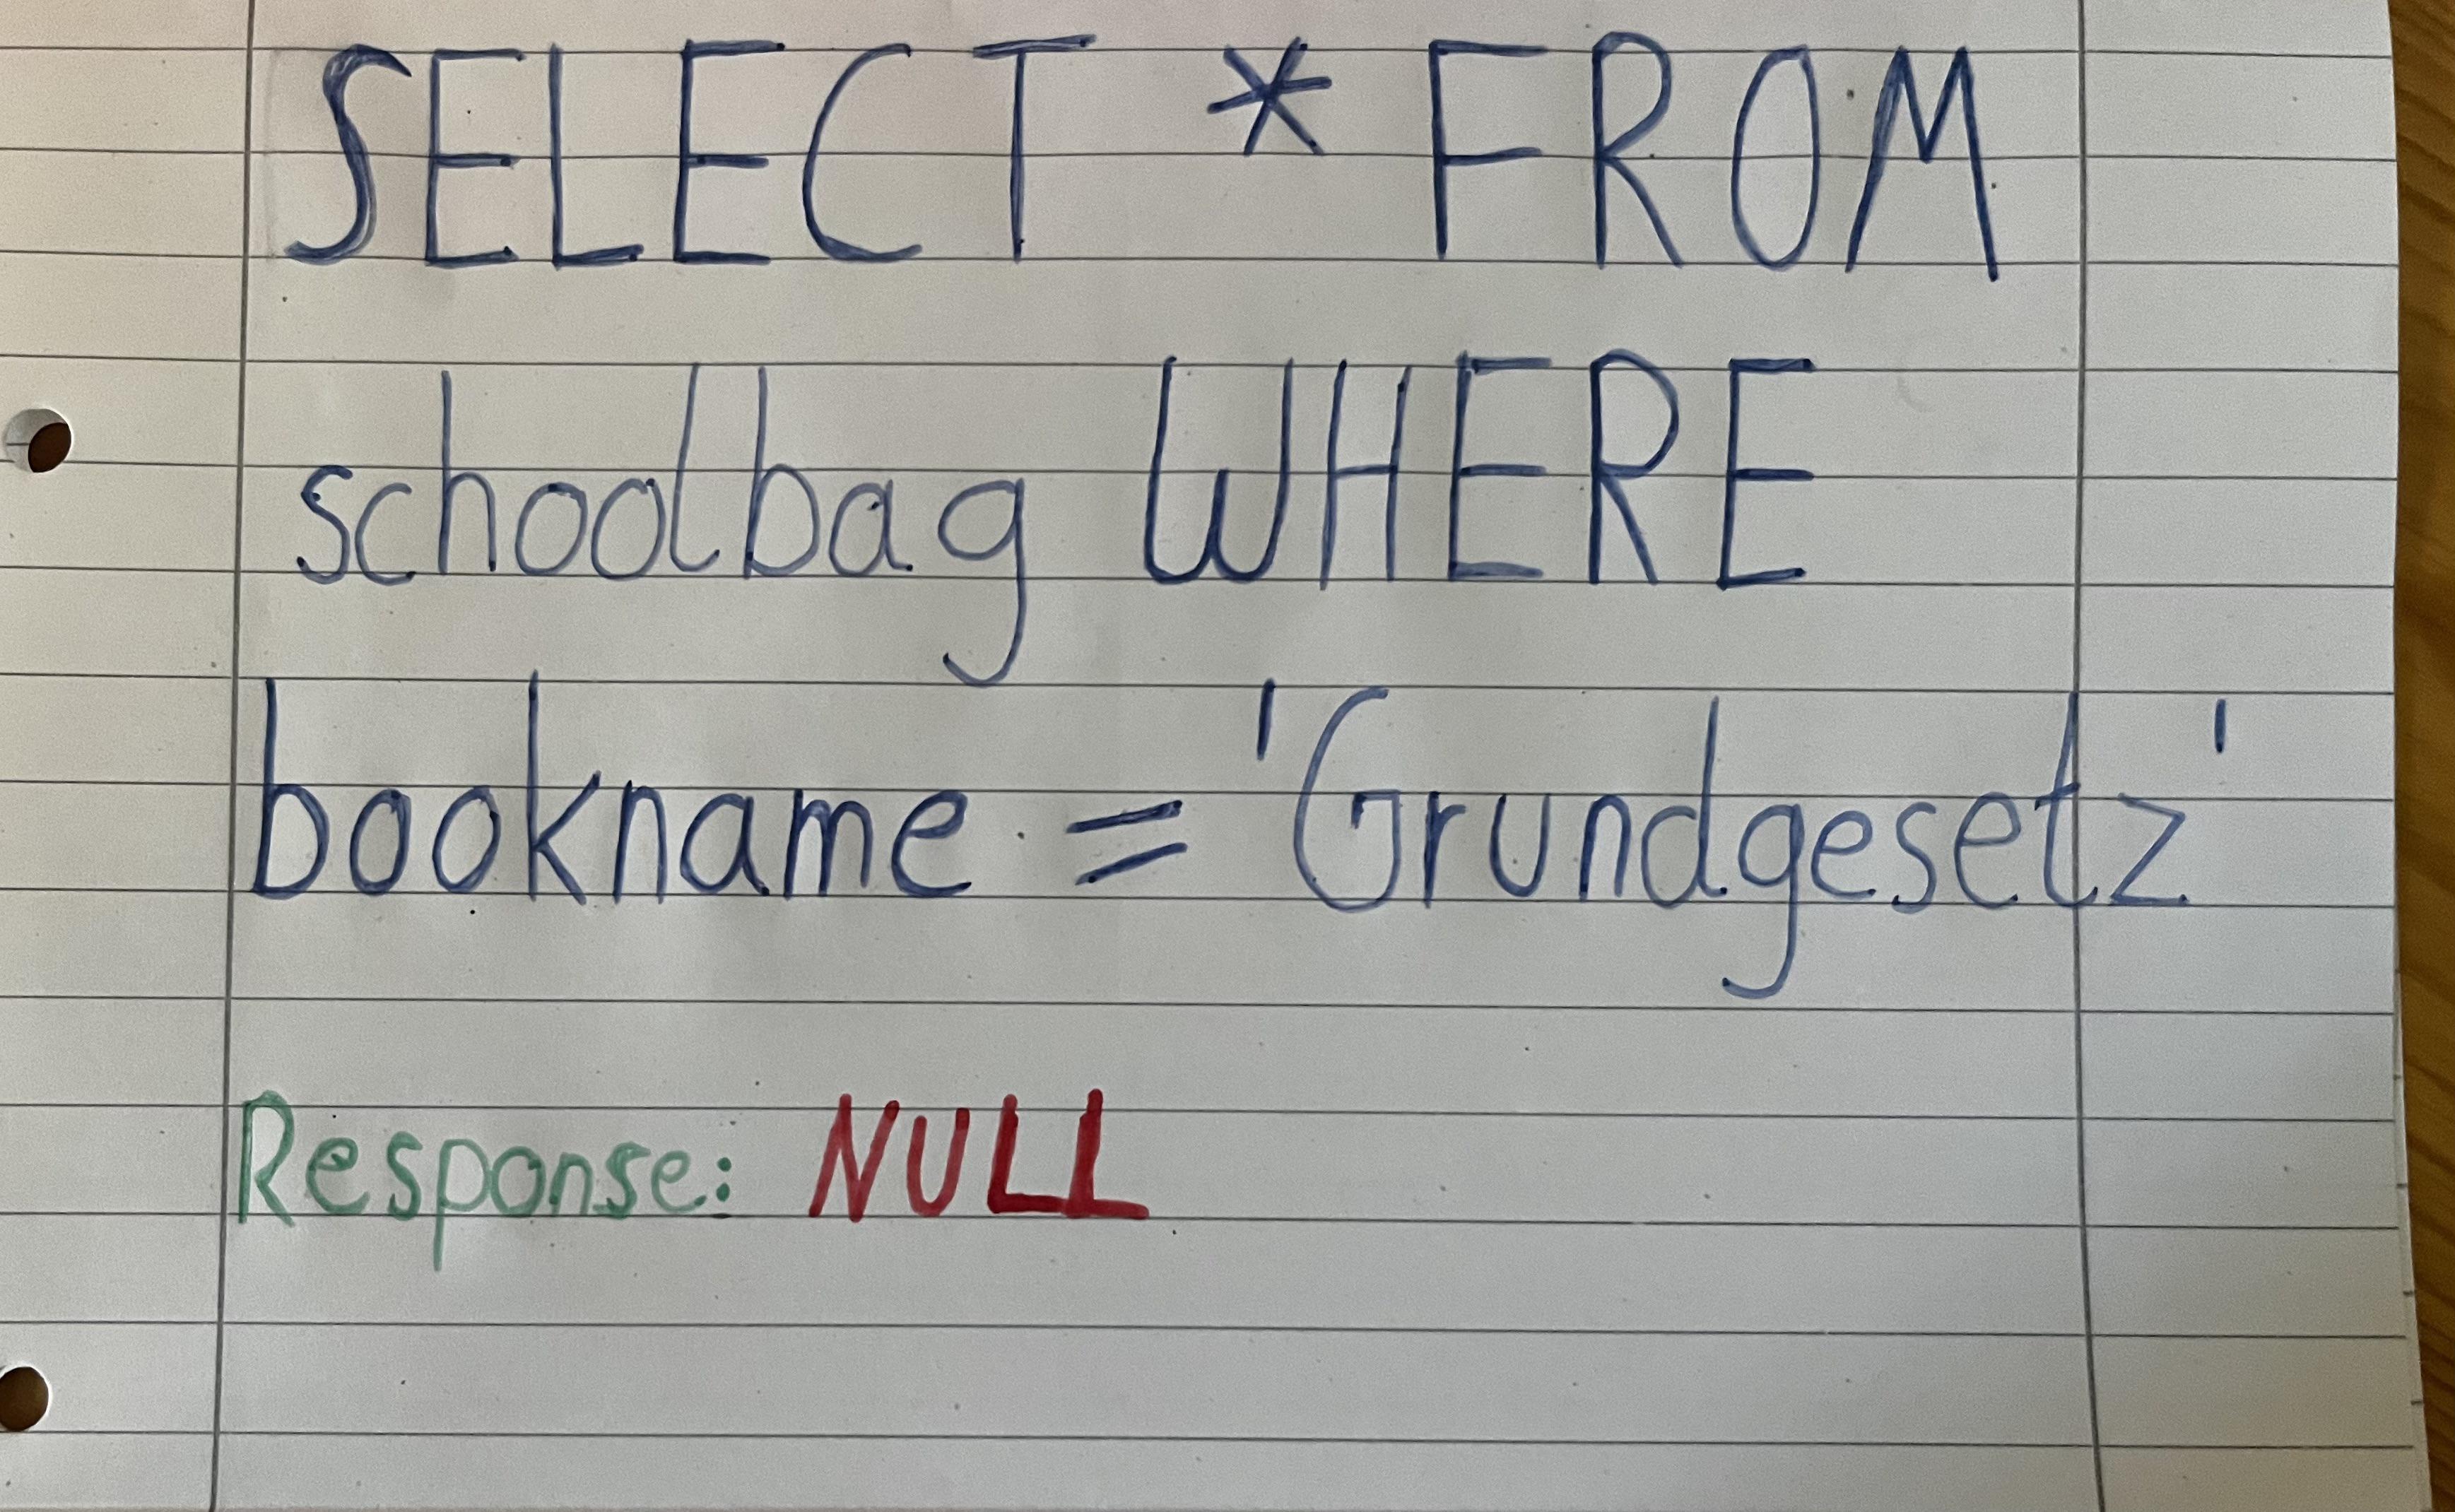 SELECT * FROM
schoolbag WHERE
bookname = 'Grundgesetz'
Response: NULL